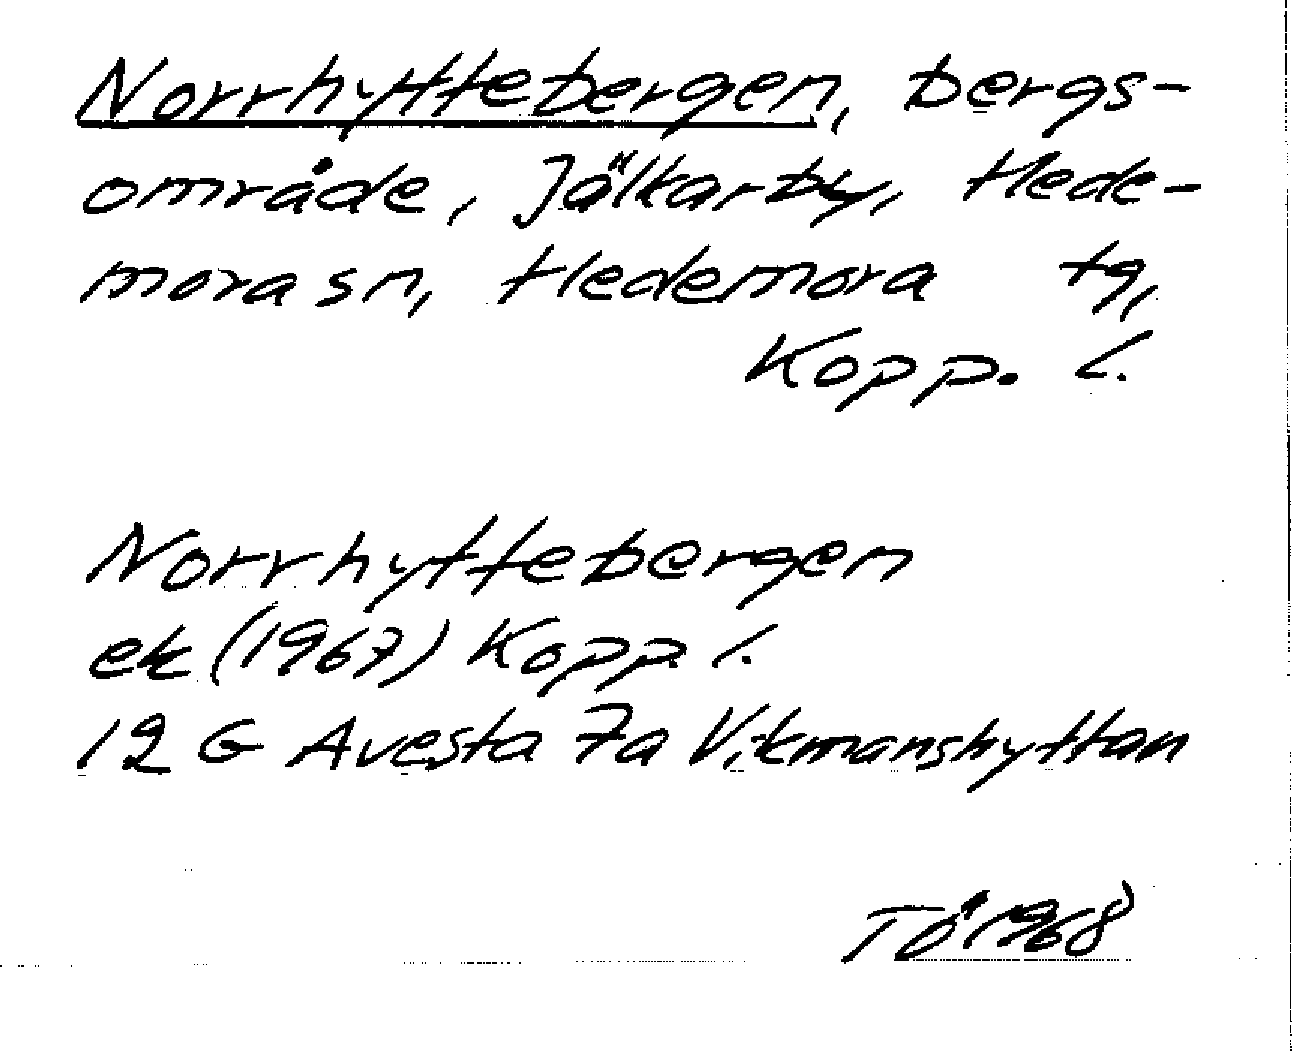 Norrhyttebergen, bergs-
område, Jälkarby, Hede-
mora sn, Hedemora tg,
Kopp. l.
Norrhyttebergen
ek (1967) Kopp. l.
12 G Avesta 7a Vikmanshyttan
TÖ 1968